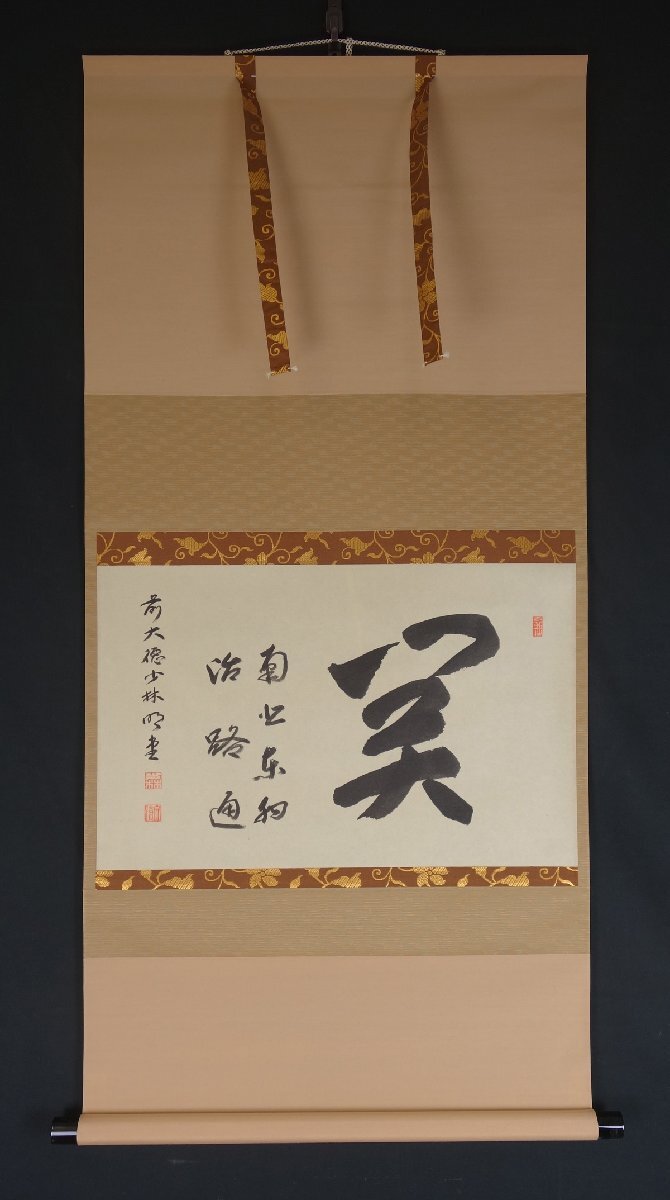 関
南北東西
活路通
前大徳少林明